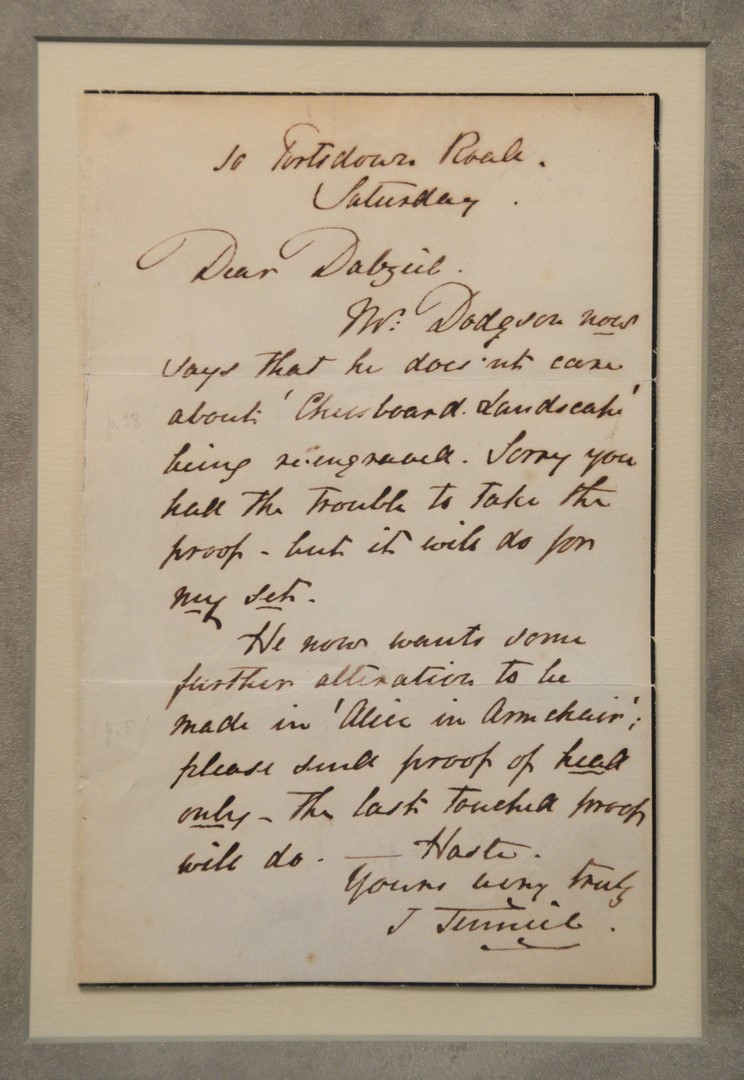 10 Portsdown Road.
Saturday.
Dear Dalziel.
Mr. Dodgson now
says that he does'nt care
about 'Chessboard Landscape'
being re-engraved. Sorry you
had the trouble to take the
proof - but it will do for
my set.
He now wants some
further alteration to be
made in 'Alice in Armchair';
please send proof of head
only - The last touched proof
will do. — Haste.
Yours very truly
J Tenniel.